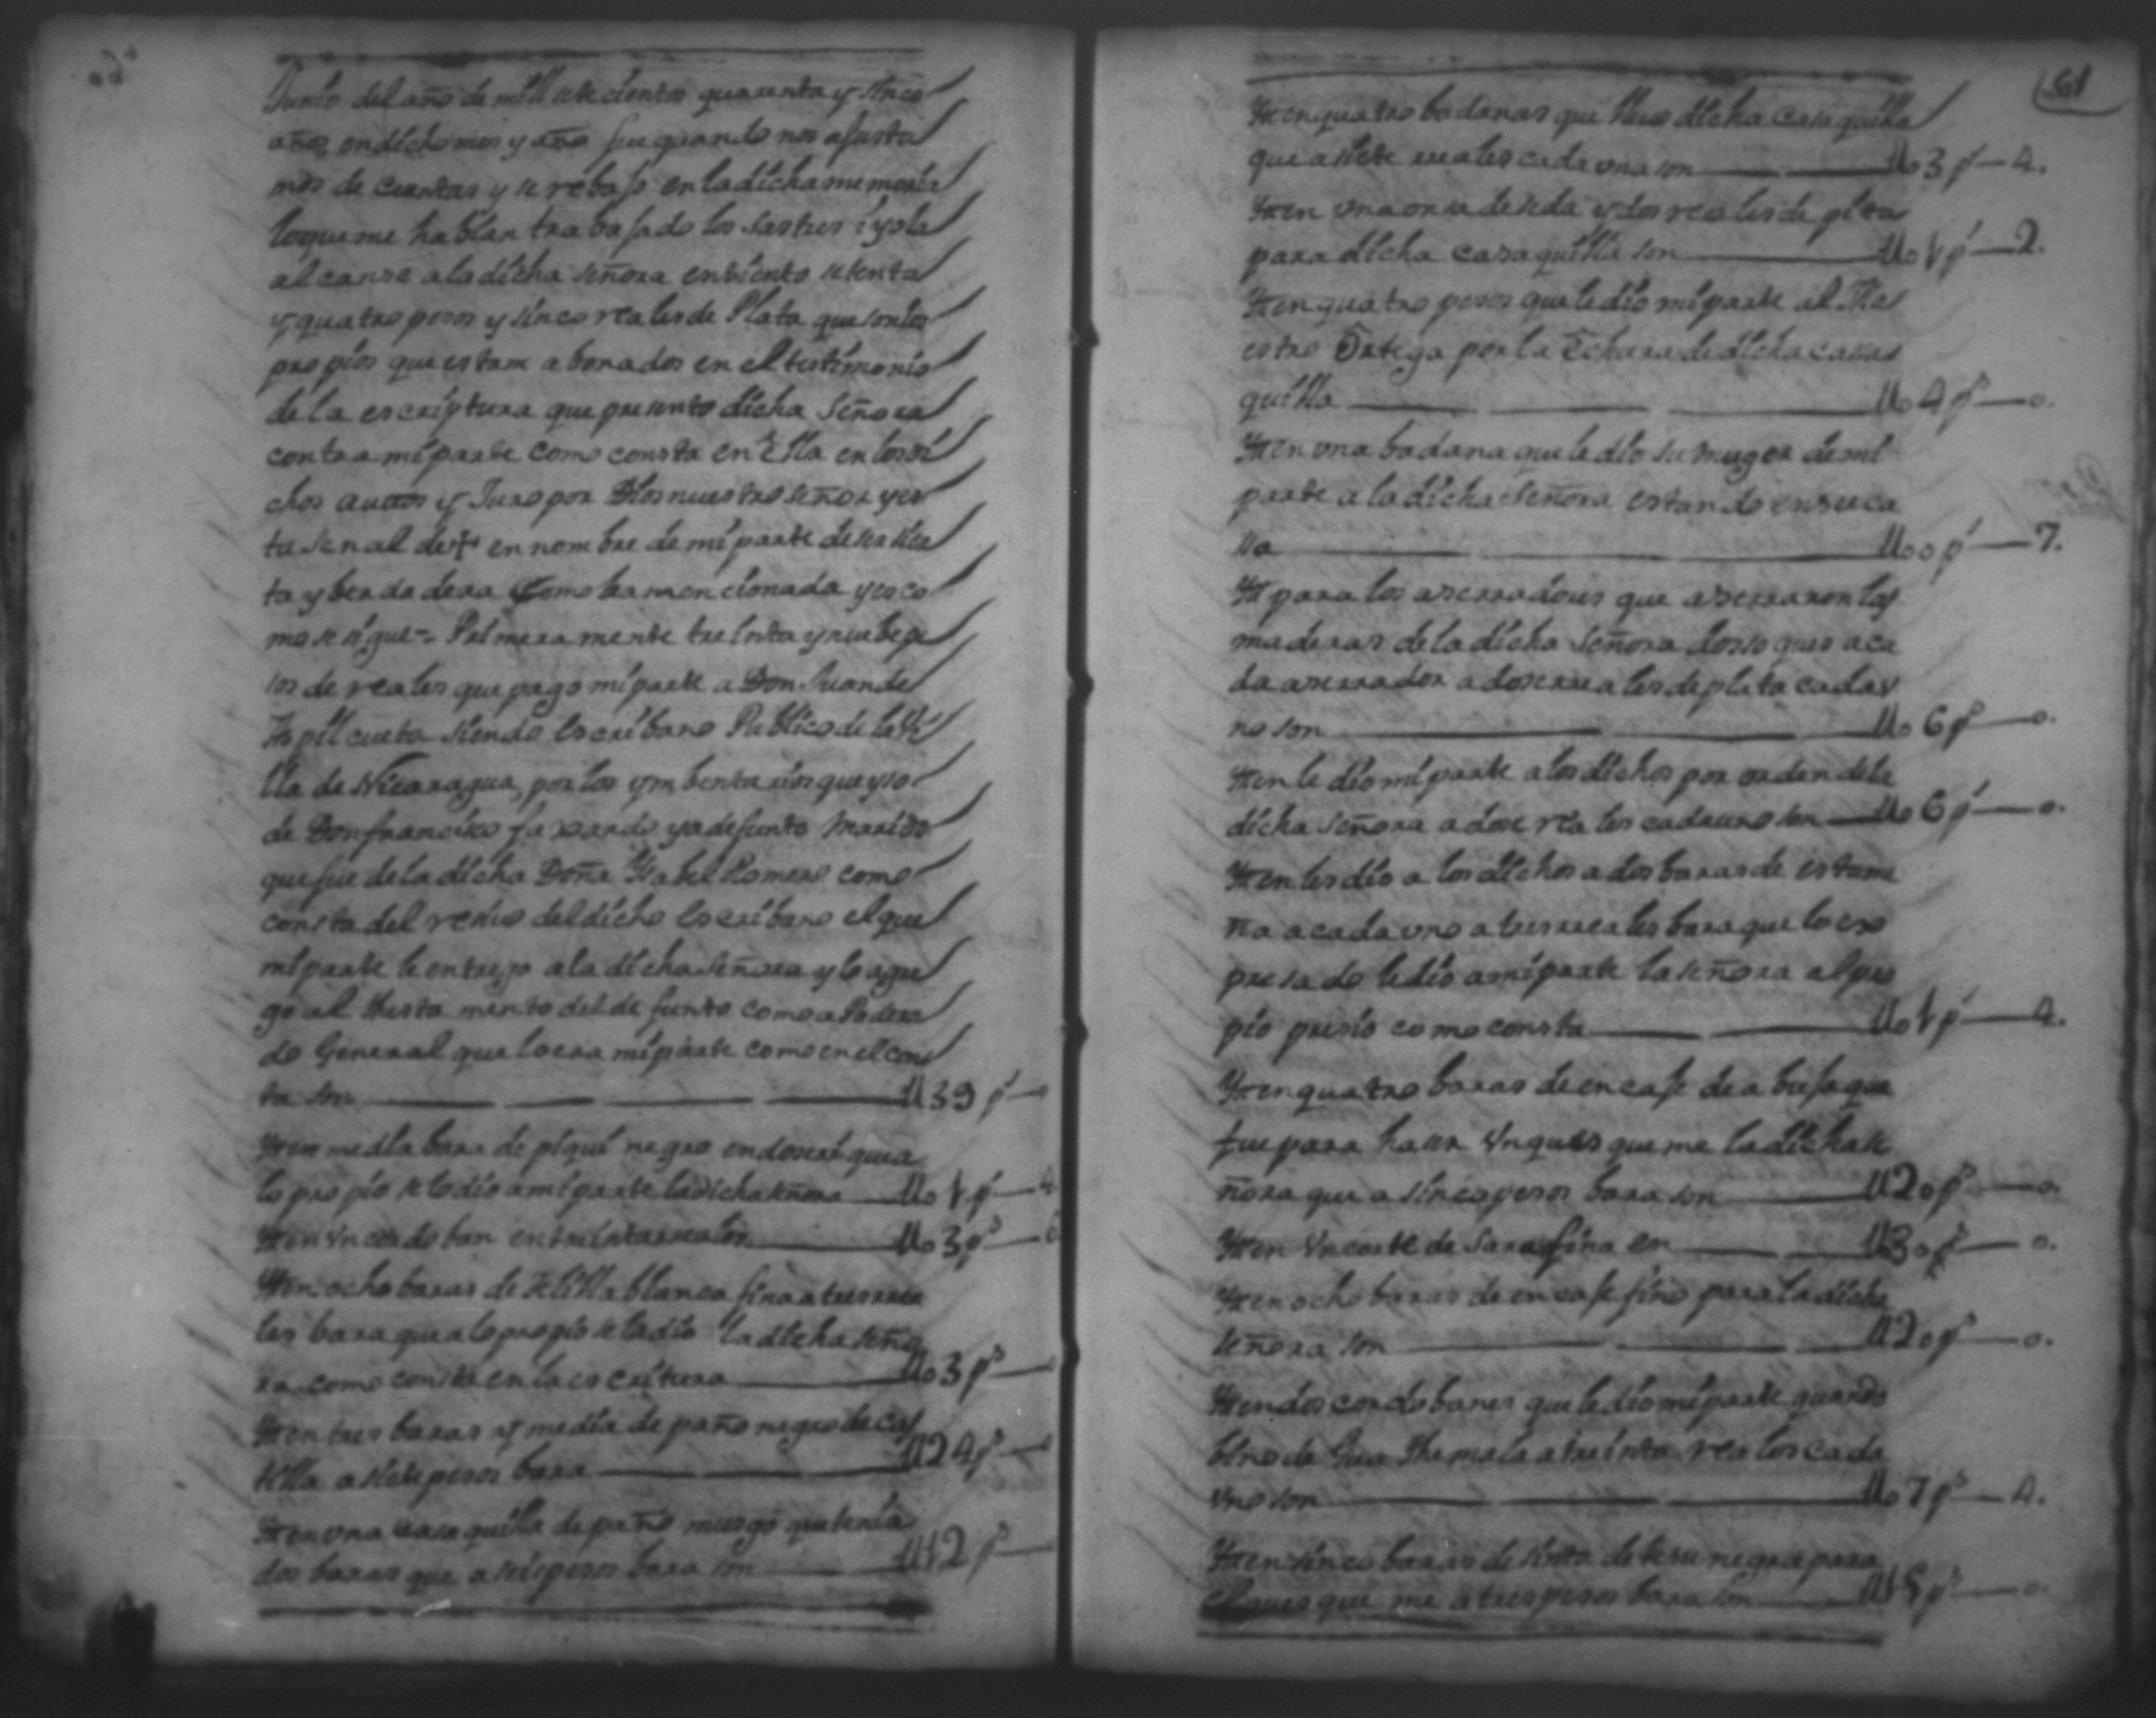 Junio del año de mill setecientos quarenta y sinco
años, en dicho mes y año fue quando nos ajusta
mos de cuentas y se rebajo en la dicha memoria
lo que me habian trabajado los sastres i yo la
alcanse a la dicha señora en siento setenta
y quatro pesos y sinco reales de Plata que son los
propios que estam abonados en el testimonio
de la escriptura que presento dicha Señora
contra mi parte como consta en Ella en los di
chos autos y Juro por Dios nuestro señor y es
ta senal de + en nombre de mi parte de ser sier
ta y berdadera Como ba mencionada y es co
mo se sigue = Primeramente treinta y nuebe pe
sos de reales que pago mi parte a Don Juan de
Aspilcueta siendo Escribano Publico de la Vi
lla de Nicaragua, por los ymbentarios que yso
de Don francisco faxardo ya defunto Marido
que fue de la dicha Doña Ysabel Romero como
consta del resiuo del dicho Escribano el que
mi parte le entrego a la dicha señora y lo agre
go al thestamento del defunto como apodera
do General que lo era mi parte como en el cons
ta son U39 p^s
Yten media bara de piqui negro en dose rs que a
lo propio se lo dio a mi parte la dicha señora Uo1 p^s 4
Yten Un cordoban en treinta reales Uo3 p^s 6
Yten ocho baras de telilla blanca fina a tres rea
les bara que a lo propio se la dio la dicha seño
ra como consta en la escritura Uo3 p^s
Yten tres baras y media de paño negro de cas
tilla a siete pesos bara U24 p^s
Yten una casaquilla de paño musgo que tenia
dos baras que a seis pesos bara son U12 p^s
61
Yten quatro badanas que lleuo dicha casaquilla
que a siete reales cada una son Uo3 p^s 4.
Yten una onsa de seda y dos reales de pita
para dicha casaquilla son Uo1 p^s 2.
Yten quatro pesos que le dio mi parte al Ma
estro Ortega por la Echura de dicha casas
quilla Uo4 p^s o.
Yten una badana que le dio su muger de mi
parte a la dicha Señora estando en su ca
sa Uoo p^s 7.
Yt para los aserradores que aserraron las
maderas de la dicha Señora a ca
da aserrador a dose reales de plata cada u
no son Uo6 p^s o.
Yten le dio mi parte a los dichos por orden de la
dicha señora a dose reales cada uno son Uo6 p^s o.
Yten les dio a los dichos a dos baras de estame
ña a cada uno a tres reales bara que lo ex
presado le dio a mi parte la señora al pro
pio presio como consta Uo1 p^s 4.
Yten quatro baras de encaje de a que
fue para haser Un que me la dicha se
ñora que a sinco pesos bara son U2o p^s o.
Yten Un corte de Sarafina en U3o p^s o.
Yten ocho baras de encaje fino para la dicha
señora son U2o p^s o.
Yten dos cordobanes que le dio mi parte quando
bino de Guathemala a treinta reales cada
uno son Uo7 p^s 4.
Yten sinco baras de sinta de tesu negra para
que me a tres pesos bara son U15 p^s o.